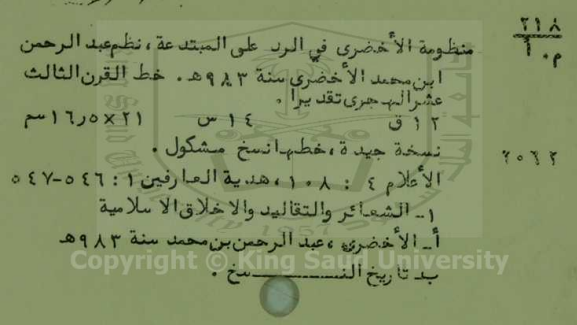 ٢١٨
م٠أ
منظومة الأخضرى في الرد على المبتدعة، نظم عبد الرحمن
ابن محمد الأخضرى سنة ٩٨٣هـ. خط القرن الثالث
عشر الهجرى تقديرا.
١٢ ق ١٤ س ٢١×١٦٫٥ سم
نسخة جيدة، خطها نسخ مشكول.
الأعلام ٤ : ١٠٨، هدية العارفين ١: ٥٤٦-٥٤٧
١- الشعائر والتقاليد والاخلاق الاسلامية
أ- الأخضرى، عبد الرحمن بن محمد سنة ٩٨٣هـ
ب- تاريخ النسخ.
Copyright © King Saud University